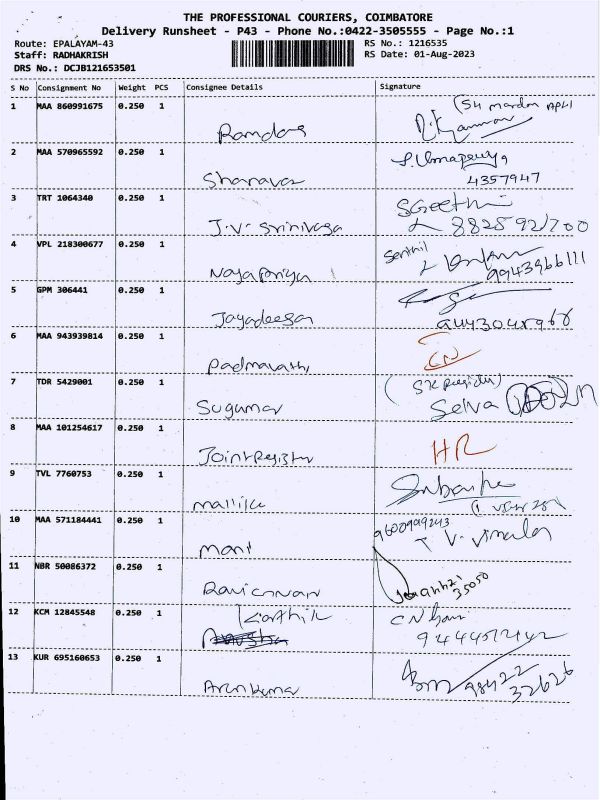 THE PROFESSIONAL COURIERS, COIMBATORE
Delivery Runsheet - P43 - Phone No.:0422-3505555 - Page No.:1
Route: EPALAYAM-43 RS No.: 1216535
Staff: RADHAKRISH RS Date: 01-Aug-2023
DRS No.: DCJB121653501
S No Consignment No Weight PCS Consignee Details Signature
1 MAA 860991675 0.250 1 Ramdas
2 MAA 570965592 0.250 1
4357947
3 TRT 1064340 0.250 1 J.V. Srinivasa
4 VPL 218300677 0.250 1 Nayapriya Senthil
9943966111
5 GPM 306441 0.250 1 Jayadeesan
6 MAA 943939814 0.250 1 Padmavathi
7 TDR 5429001 0.250 1 Sugumar Selva
8 MAA 101254617 0.250 1 Joint Register HR
9 TVL 7760753 0.250 1 Mallika
10 MAA 571184441 0.250 1 Mani V. Vimala
11 NBR 50086372 0.250 1
35050
12 KCM 12845548 0.250 1 Karthik
13 KUR 695160653 0.250 1 Arun Kumar 98422
32626